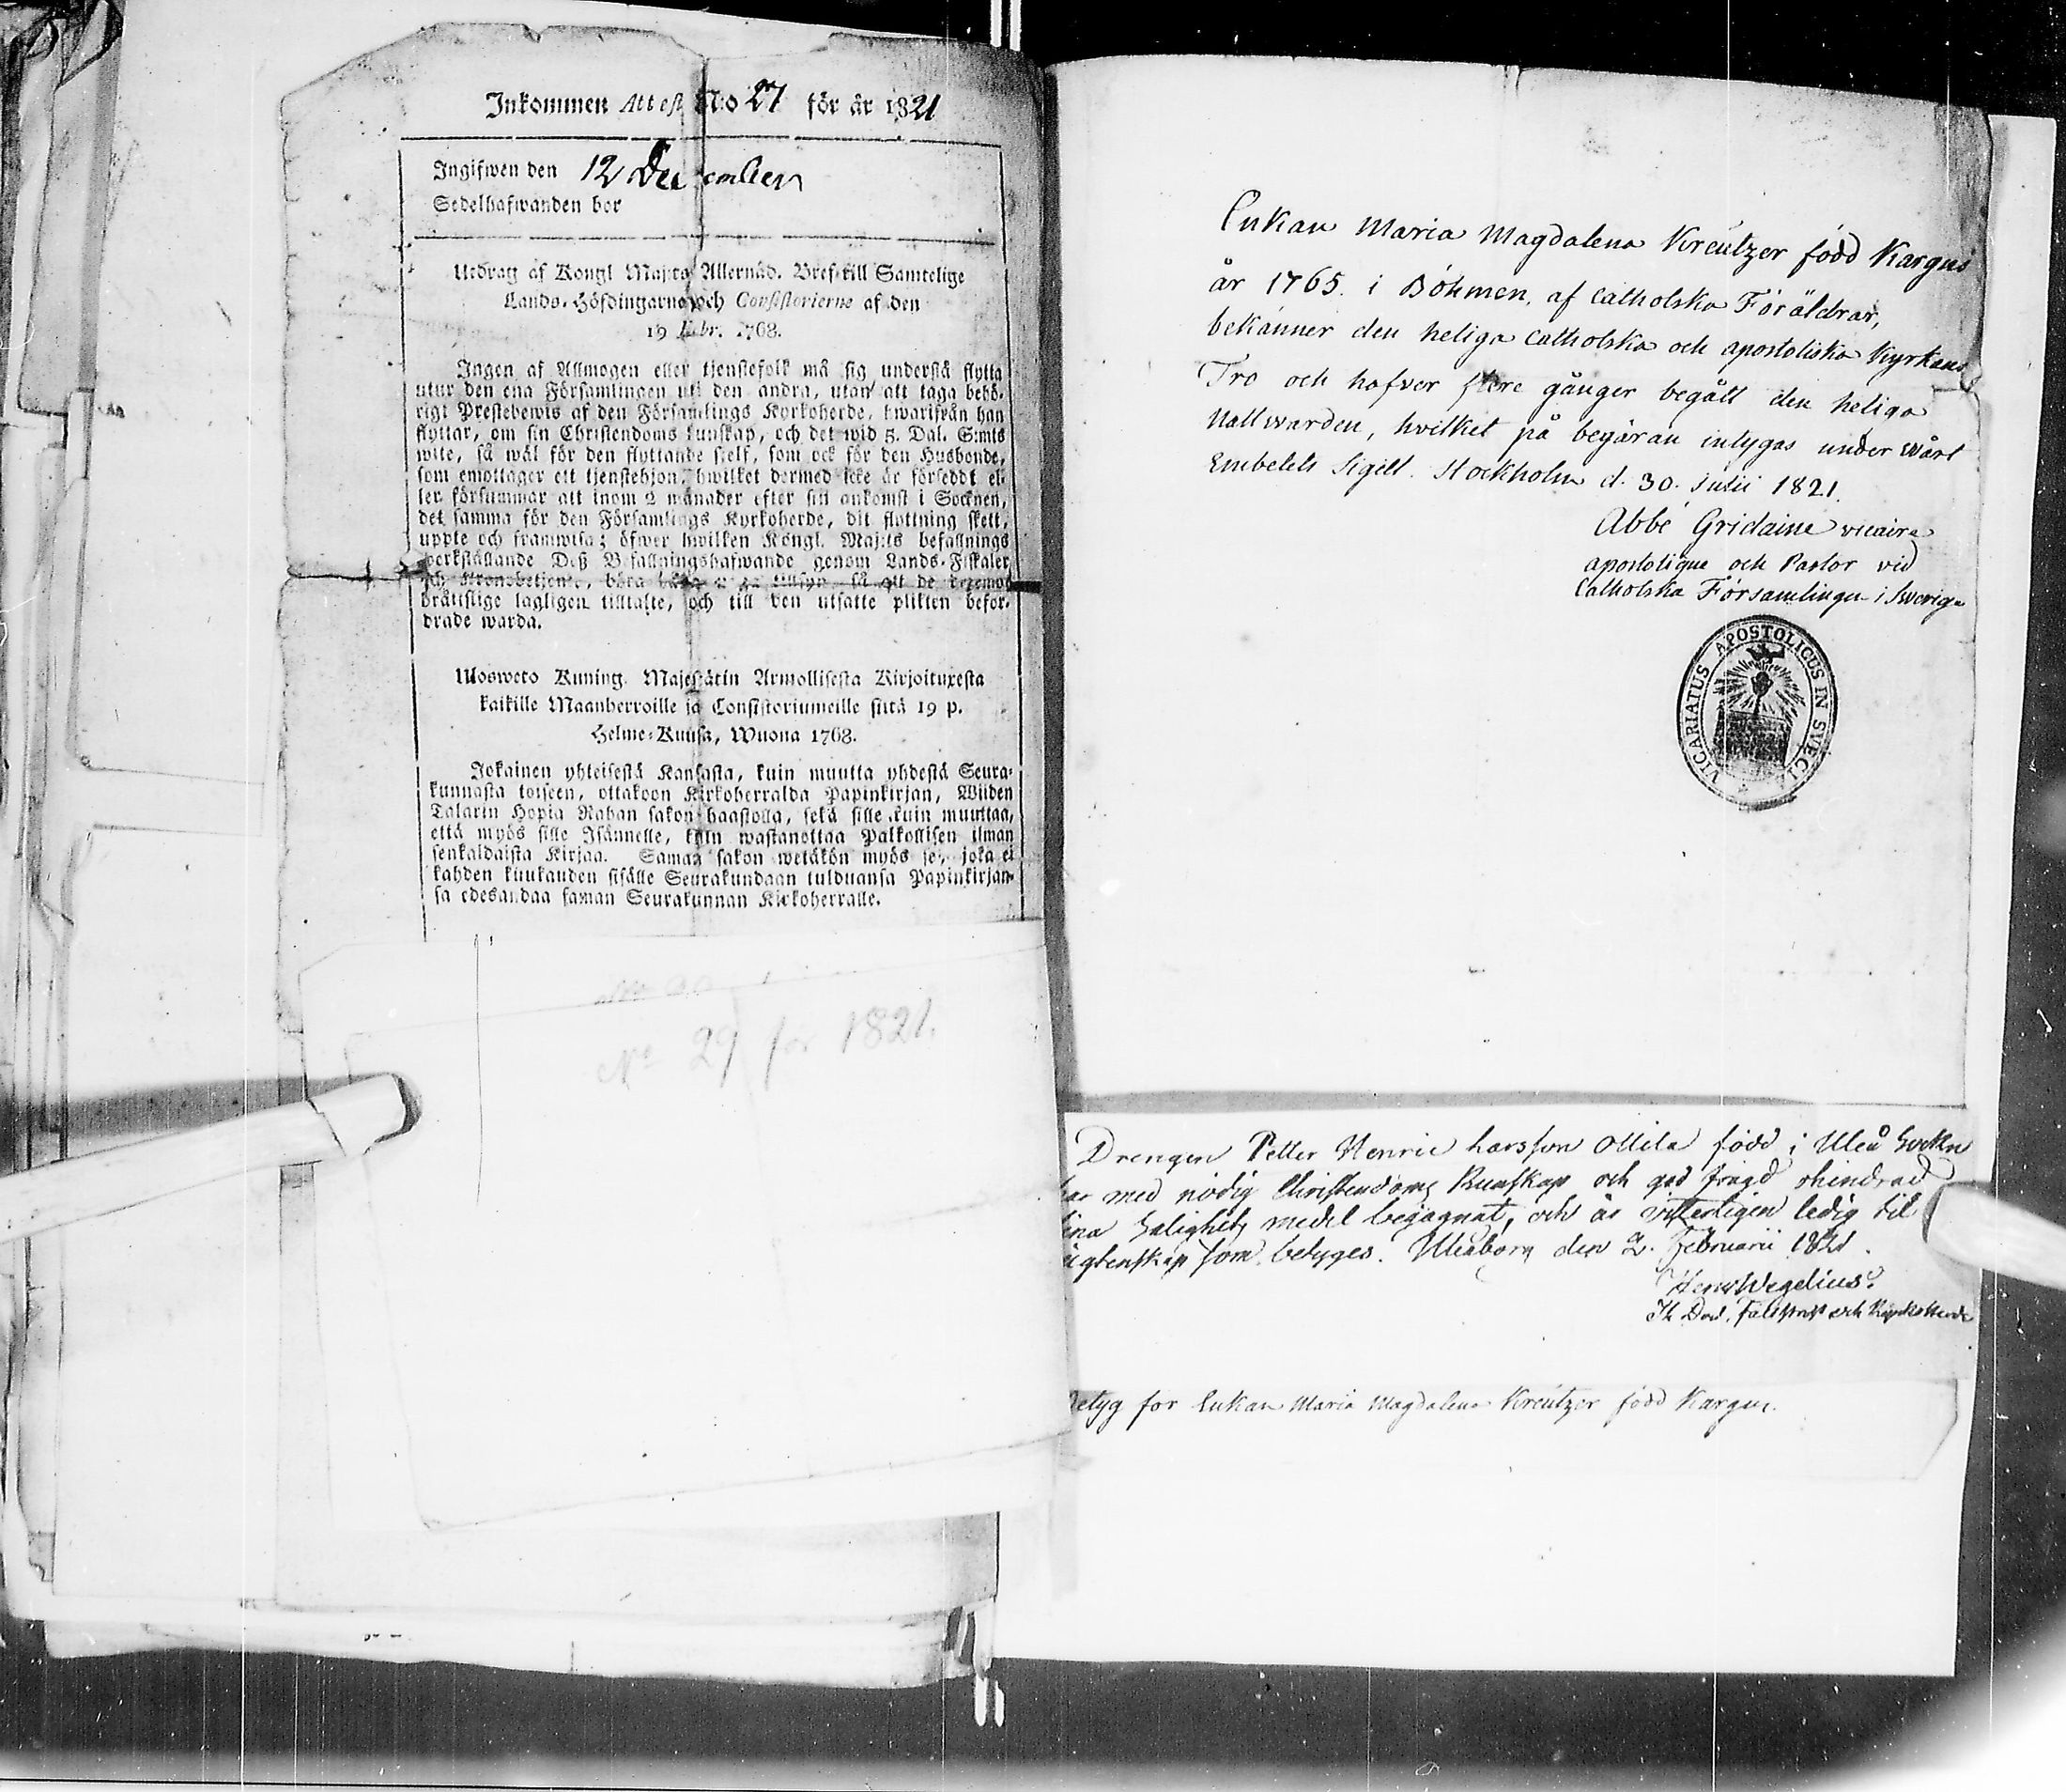 Inkommen Attest N:o 27 för år 1821
Ingifwen den 12 December
Sedelhafwanden bor
Utdrag af Kongl Maj:ts Allernåd. Bref till Samtelige
Lands-Höfdingarne och Consistorierne af den
19 Febr. 1768.
Ingen af Allmogen eller tjenstefolk må sig understå flytta
utur den ena Församlingen uti den andra, utan att taga behö-
rigt Prestebewis af den Församlings Kyrkoherde, hwarifrån han
flyttar, om sin Christendoms kunskap, och det wid 5. Dal. S:mts
wite, så wäl för den flyttande sjelf, som ock för den Husbonde,
som emottager ett tjenstehjon, hwilket dermed icke är försedt el-
ler försummar att inom 2 månader efter sin ankomst i Socknen,
det samma för den Församlings Kyrkoherde, dit flyttning skett,
uppte och framwisa; öfwer hwilken Kongl. Maj:ts befallnings
werkställande Deß Befallningshafwande genom Lands-Fiskaler
och Kronobetjente, böra hafwa tillsyn så att de
brättslige lagligen tilltalte, och till den utsatte plikten befor-
drade warda.
Ulosweto Kuning. Majestätin Armollisesta Kirjoituxesta
kaikille Maanherroille ja Consistoriumeille siitä 19 p.
Helme-Kuusa, Wuona 1768.
Jokainen yhteisestä Kansasta, kuin muutta yhdestä Seura-
kunnasta toiseen, ottakoon Kirkoherralda Papinkirjan, Wiiden
Talarin Hopia Rahan sakon haastolla, sekä sille kuin muuttaa,
että myös sille Isännelle, kuin wastanottaa Palkollisen ilman
senkaldaista Kirjaa. Saman sakon wetäkön myös se, joka ei
kahden kuukauden sisälle Seurakundaan tulduansa Papinkirjan-
sa edesandaa saman Seurakunnan Kirkoherralle.
No 29 for 1821.
Enkan Maria Magdalena Kreutzer född Kargus
år 1765. i Böhmen. af Catholska Föräldrar,
bekänner den heliga catholska och apostoliska Kyrkans
Tro och hafver flere gånger begått den heliga
Nattwarden, hvilket på begäran intygas under wårt
Embetets Sigill. Stockholm d. 30. Julii 1821.
Abbé Gridaine vicaire
apostolique och Pastor vid
Catholska Församlingen i Swerige
VICARIATUS APOSTOLICUS IN SVECI
Drengen Petter Henric Larsson Ollila född i Uleå Sockn
har med nödig Christendoms Kunskap och god frägd ohindrad
sina Salighets medel begagnat, och är witterligen ledig til
ägtenskap som betyges. Uleåborg den 2. Februarii 1821.
Henr Wegelius.
Th Doct. Fältprost och Kyrkoherde
Betyg for Enkan Maria Magdalena Kreutzer född Kargus.